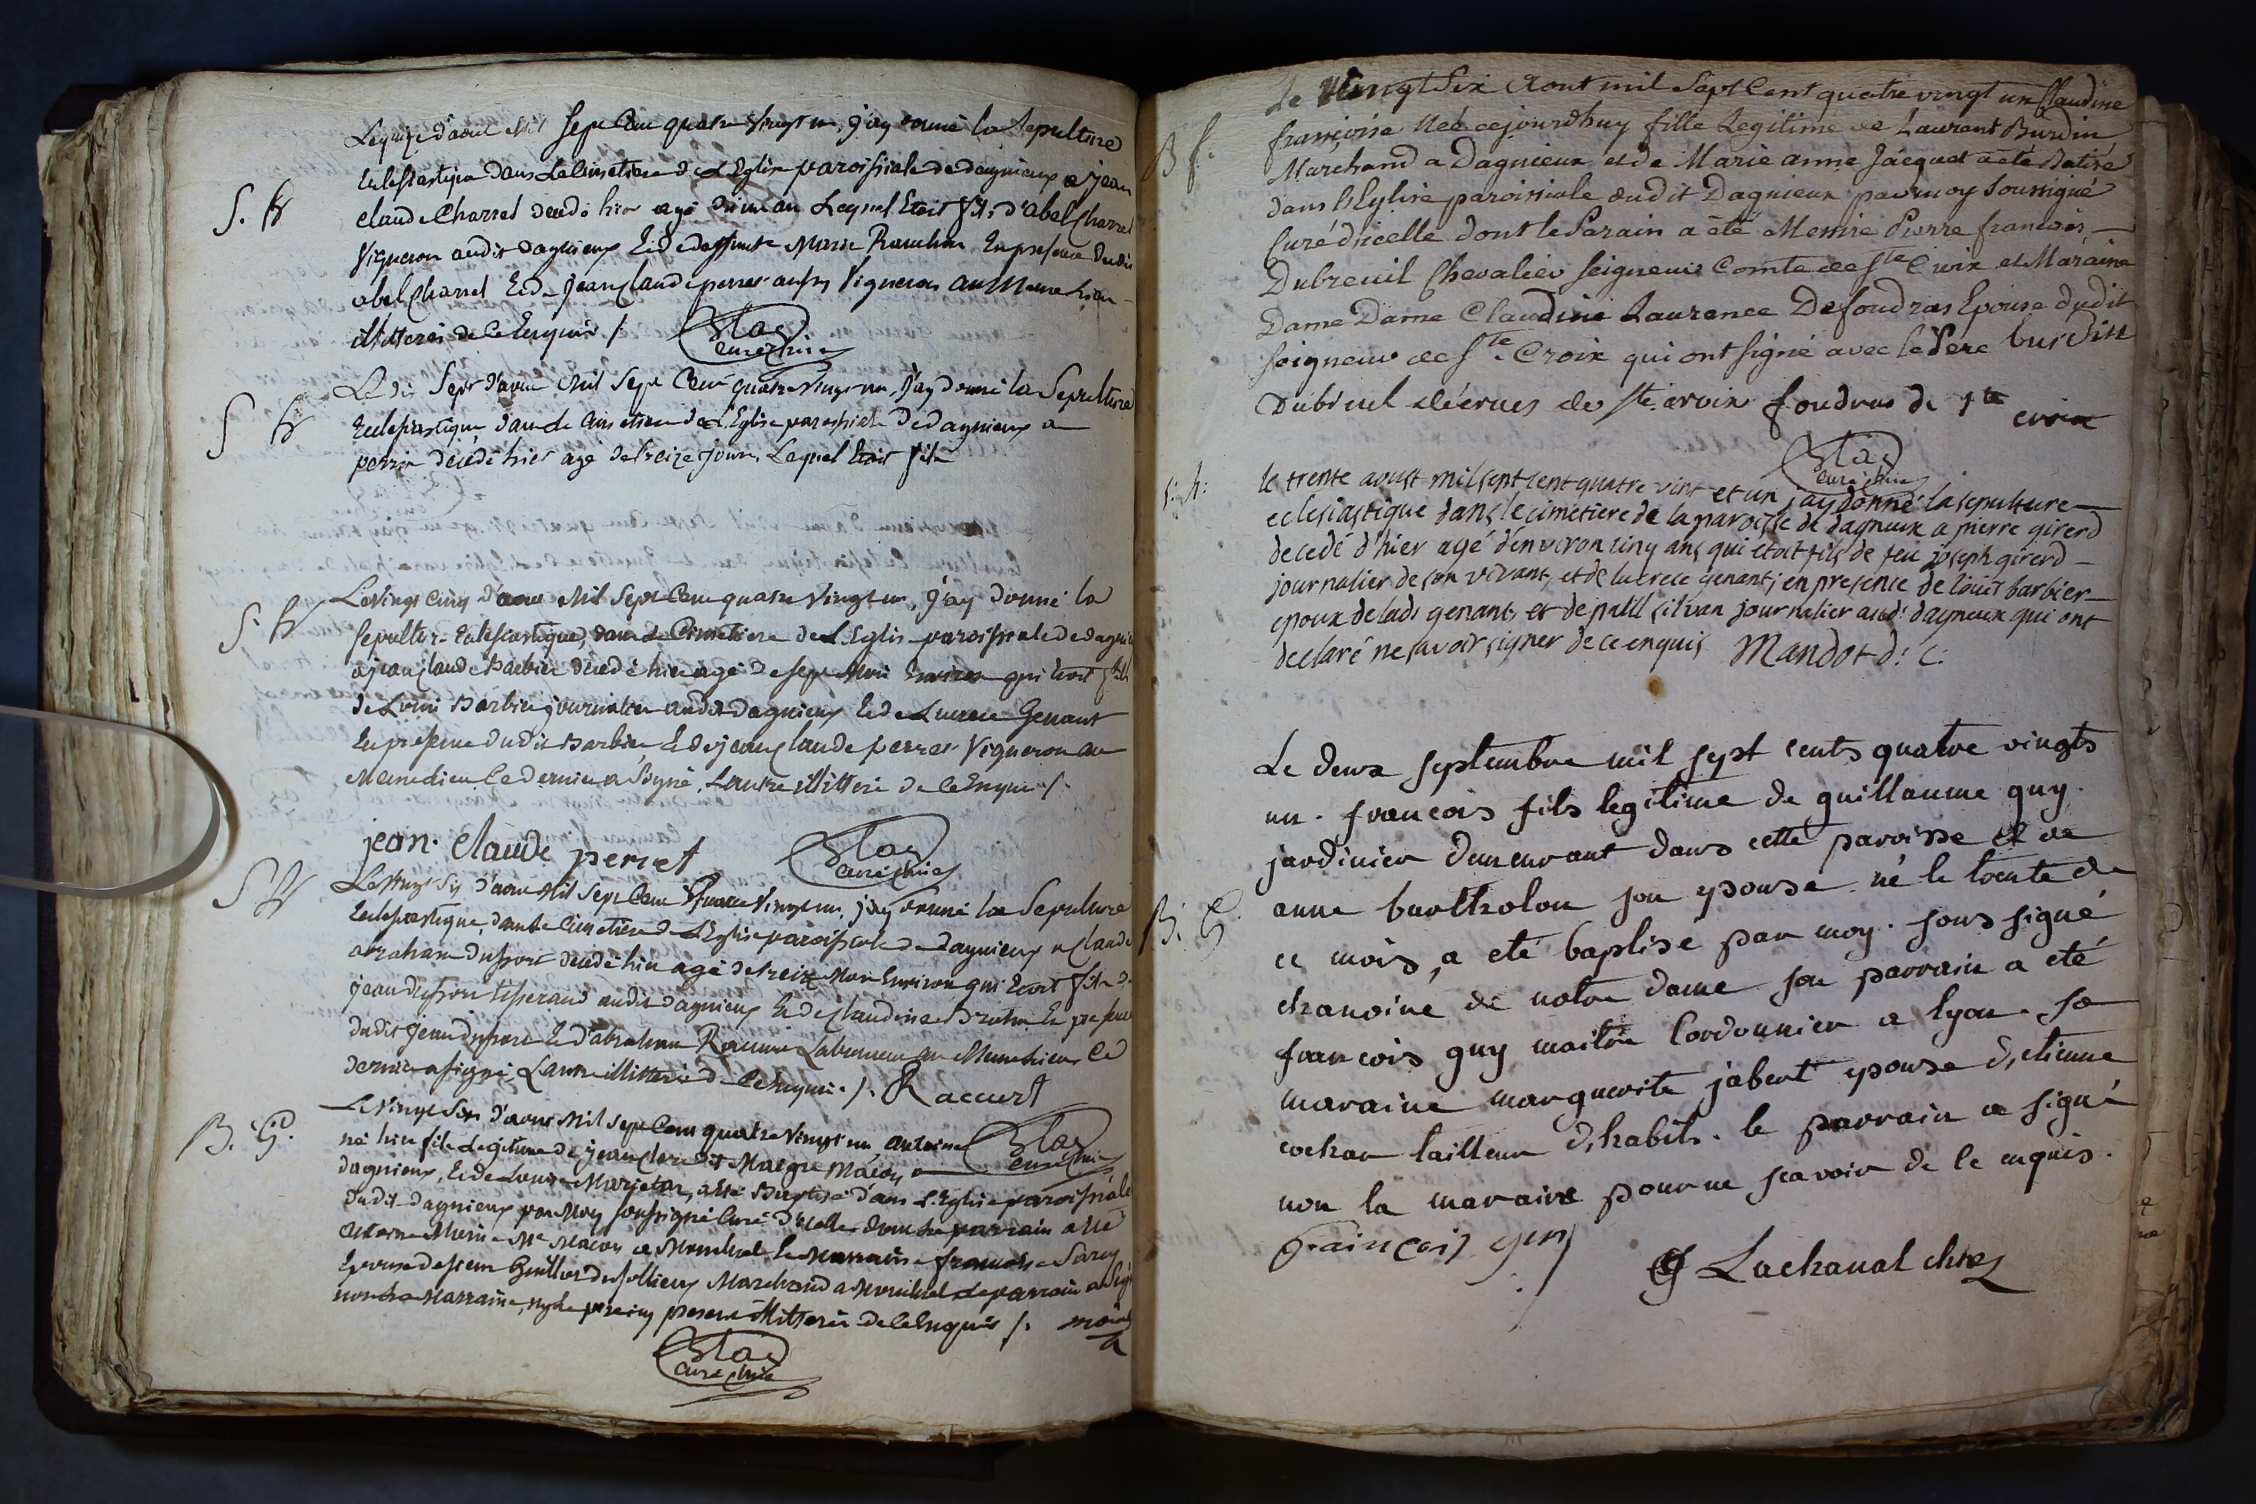 Le quinze d'aout Mil Sept Cent quatre Vingt un, j'ay donné la Sepulture
Ecclesiastique dans Le Cimetiere de L'Eglise paroissiale de dagnieux a jean
claude Charrel decedé hier agé d'un an Lequel Etoit fils d'abel Charrel
Vigneron audit dagnieux Et de deffunte Marie En presence dudit
abel Charrel Et de Jean Claude perret aussi Vigneron au Meme lieu
illitterés de Ce Enquis /.
curé
S. h
Le dix Sept d'aout Mil Sept Cent quatre Vingt un, j'ay donné la Sepulture
Ecclesiastique dans le Cimetiere de L'Eglise paroissiale De dagnieux a
perrin decedé hier agé de treize jours, Lequel Etoit fils
S h
Le Vingt Cinq d'aout Mil Sept Cent quatre Vingt un, j'ay donné la
Sepulture Ecclesiastique, dans Le Cimetiere de L'Eglise paroissiale de dagnieux
a jean Claude Barbier decedé hier agé de sept Mois Environ qui Etoit fils
de Louis Barbier journalier audit dagnieux Et de Lucrece Genant
En presence dudit Barbier Et de jean Claude perret Vigneron au
Meme lieu Ce dernier a Signé, L'autre illitteré de Ce Enquis /.
S. h
jean. Claude perret
curé
Le Vingt Six d'aout Mil Sept Cent Quatre Vingt un, j'ay donné la Sepulture
Ecclesiastique, dans le Cimetiere de L'Eglise paroissiale de dagnieux a Claude
abraham dufront decedé hier agé de treize Mois Environ qui Etoit fils de
jean tisserand audit dagnieux Et de Claudine En presence
dudit jean Et d'abraham Laboureur au Meme lieu Ce
dernier a signé, L'autre illitteré de Ce Enquis. /. Raccurt
S h
Le Vingt Six d'aout Mil Sept Cent quatre Vingt un antoine
né hier fils Legitime de jean dit Maigre Maçon a
dagnieux, Et de Louise, a Eté Baptisé dans L'Eglise paroissiale
dudit dagnieux par Moy soussigné Curé d'icelle dont le parrain a Eté
antoine Me Macon a Montluel la Marraine francoise
Epouse de sieur Marchand a Montluel Le parrain a signé
non la Marraine, ny le pere icy present illitterés de Ce Enquis /.
B. G.
curé
Le Vingt Six Aout mil Sept Cent quatre vingt un Claudine
françoise Neé cejourd'huy fille Legitime de Laurent Burdin
Marchand a Dagnieux et de Marie anne Jacquet a été Batisé
dans l'Eglise paroissiale dudit Dagnieux par moy Soussigné
Curé d'icelle dont le Parain a été Messire Pierre francois
Dubreuil Chevalier Seigneur Comte de Ste Croix et Maraine
Dame Dame Claudine Laurence Defoudras Epouse dudit
Seigneur de Ste Croix qui ont signé avec le Pere burdin
B f.
Dubreul de ste. croix foudras de ste croix
curé
le trente aoust mil sept cent quatre vint et un j'ay donné la sepulture
eclesiastique dans le cimetiere de la paroisse de dagnieux a pierre girerd
decedé d'hier agé d'environ cinq ans qui etoit fils de feu joseph girerd
journalier de son vivant, et de lucrece genant; en presence de louis barbier
epoux de lade genant et de silvan journalier aud: dagneux qui ont
declaré ne savoir signer de ce enquis Mandot d: C:
S. h:
Le deux septembre mil sept cents quatre vingts
un. francois fils legitime de guillaume guy
jardinier demeurant dans cette paroisse et de
anne bartholon son epouse né le trente de
ce mois, a eté baptisé par moy. sous signé
chanoine de notre dame son parrain a eté
francois guy maitre Cordonnier a lyon. sa
maraine marguerite jabert epouse d'etienne
cochar tailleur d'habits. le parrain a signé
non la maraine pour ne scavoir de ce enquis.
B. G.
françois guy
Lachanal chne